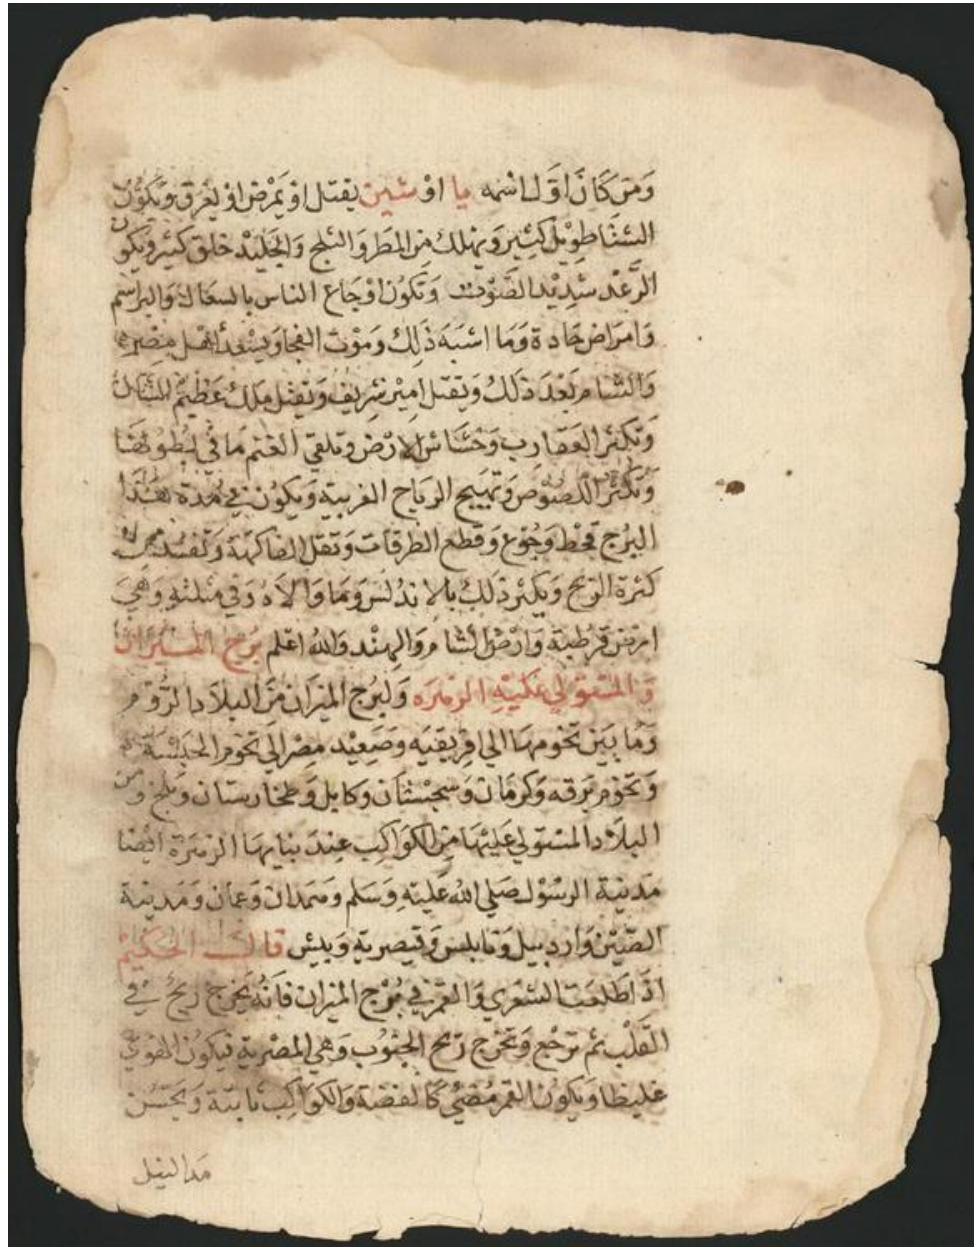 وَمَن كَانَ اوَّل اسْمه يا اوْ شين يقتل اوْ يَمْرض اوْ يغرق وَيَكوُن
الشتَا طوِيْل كثِير وَيهْلك مِن المَطر وَالثلج وَالجَليْد خلق كثير ويكون
الرَّعْد شدِيْد الصَّوْت وَتكوُن اوْجَاع الناس بالسعَال وَالبراسم
وَامرَاض حَادة وَمَا اشبَه ذَلِك وَمَوْت الفجا وَيسْعد اهْل مِصْر
وَالشام بَعْد ذلكُ وَيقتل امِيْر شرِيف وَيقتل مَلك عَظِيْم الشان
وَتكثر العَقارب وَخشاش الارْض وتلقي الغنم مَا في بُطوُنهَا
وَتكثر اللصُوْص وَتهيج الريَاح الغربية وَيكوُن في مُدة هَذا
البرُج قحْط وَجُوْع وَقطع الطرقات وَتقل الفاكهَة وَتفسُد من
كثرَة الريح وَيكثر ذلِك بالاندلسْ وَمَا وَالاهُ وَفي مثلثهِ وَهيَ
ارض قرْطبَة وَارْض الشام وَالهِنْد وَاللهُ اعْلم بُرْج الميْزان
وَالمسْتوْلي عَليْهِ الزهرَه وَلبرُج الميْزان مَن البلاَد الرُّوْم
وَمَا بَين تخوُمهَا الي افرِيقيَه وَصَعِيْد مِصْر الي تخوُم الحَبَشة
وَتخوُم برْقه وَكرْمَان وَسجسْتان وَكابل وَطخارستان وَبلخ وَمن
البلاد المسْتوْلي عَليْهَا مِن الكوَاكِب عِندَ بنايهَا الزهرَة ايْضا
مَدينة الرسُوْل صَلي الله عَليْهِ وَسَلم وَهمدان وَعمَان وَمَدينة
الصِّيْن وَارد بيل وَنابلس وَقيصرية وَبيْس قالَ الحَكيْم
اذَا طلعَت الشعْري وَالقمَر في بُرْج الميْزان فانهُ يَخرج رِيْحُ في
القَلبْ ثم ترْجع وَتخرْج رِيْح الجنوُب وَهي المصْرية فيكوُن الهَوي
غليظا وَيكوُن القمَر مُضيْ كالفضة وَالكوَاكِب ثابتة وَيَحْسُن
مَد النيل